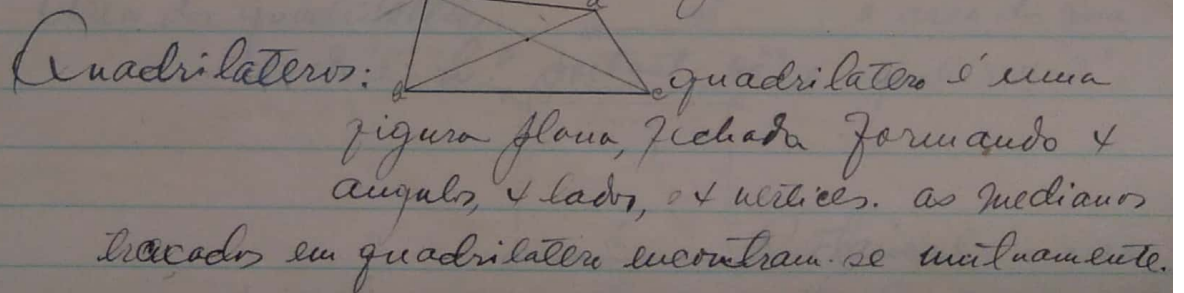 Quadrilateros: quadrilatero é uma
figura plana, fechada formando 4
angulos, 4 lados, 4 vertices. as medianas
tracadas em quadrilatero encontram-se mutuamente.